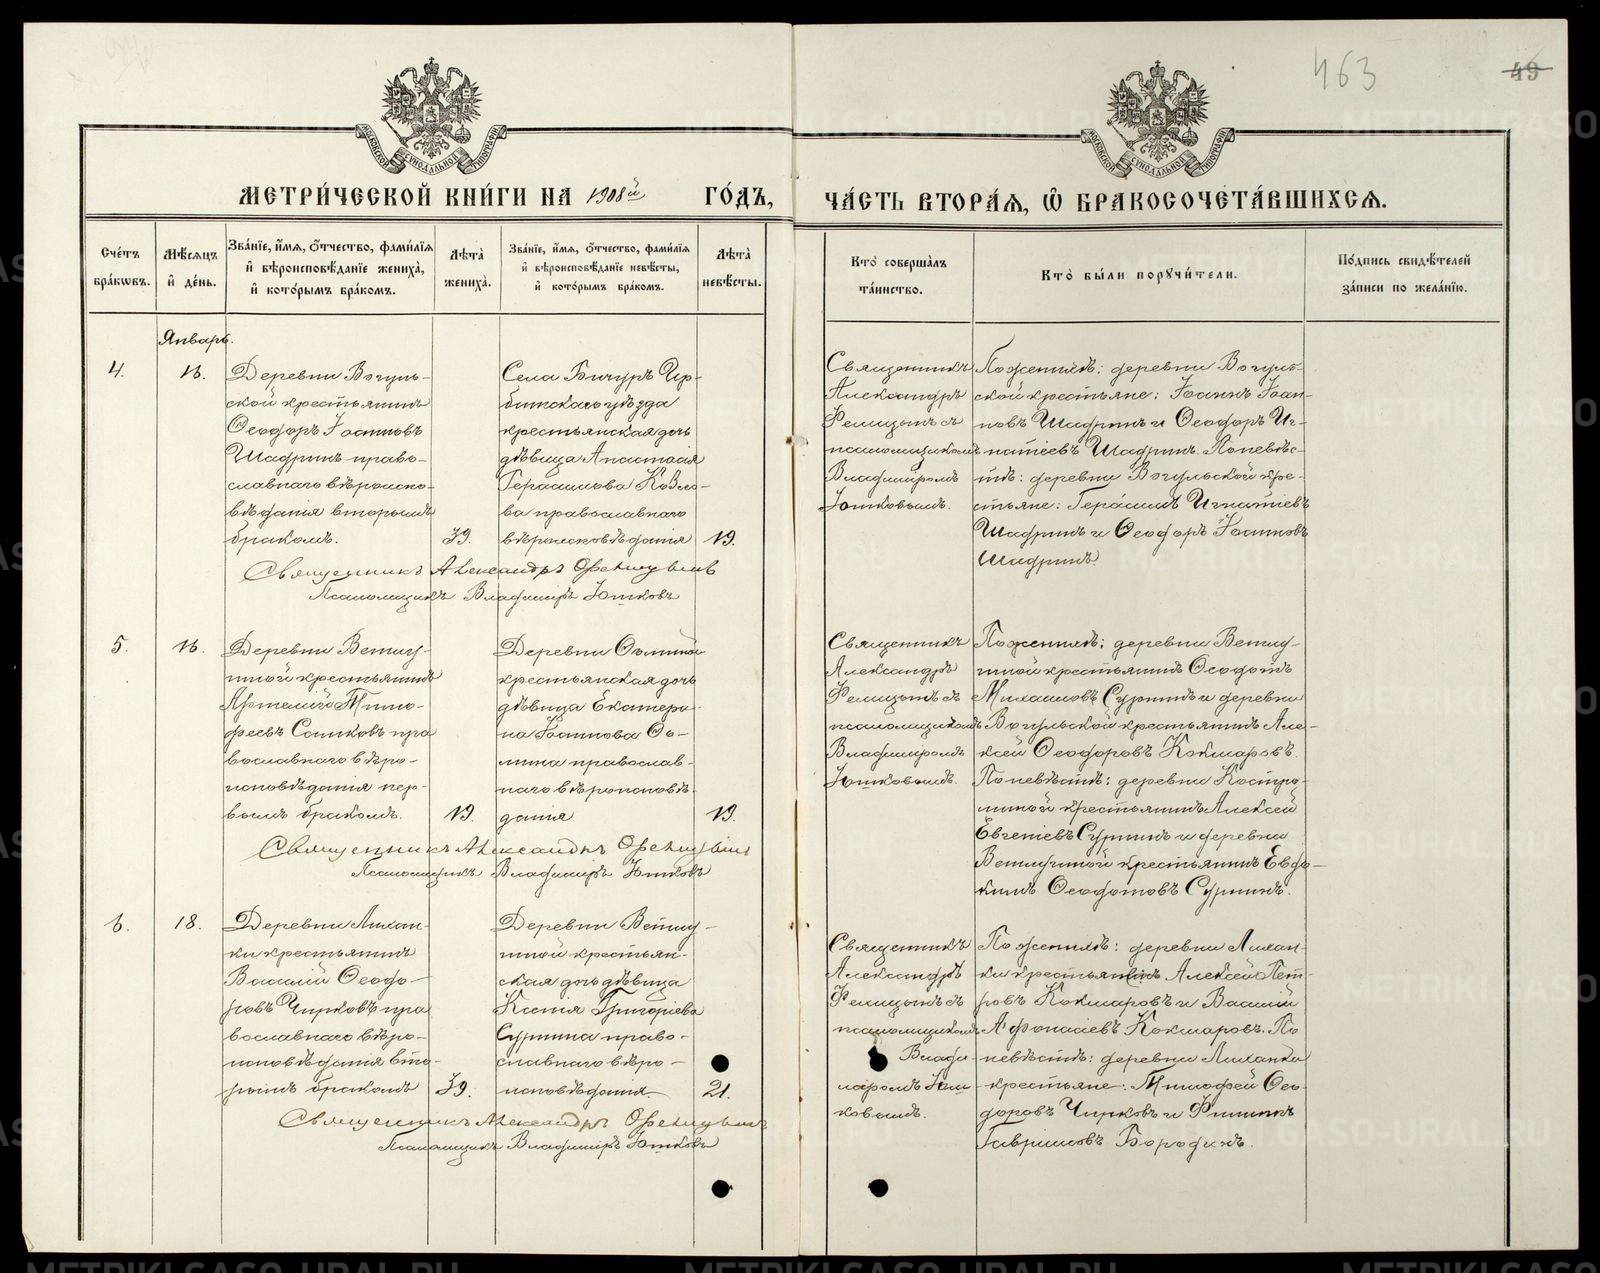 463
49
МЕТРИ́ЧЕСКОЙ КНИ́ГИ НА 1908й ГО́ДЪ,
ЧА́СТЬ ВТОРА́Я, Ѡ БРАКОСОЧЕТА́ВШИХСЯ.
Сче́тъ бра́кѡвъ.
Мѣ́сяцъ и҆ де́нь.
Зва́нїе, и҆́мя, ѻ҆́тчество, фами́лїя и҆ вѣроисповѣ́данїе жениха̀, и҆ кото́рымъ бра́комъ.
Лѣ́та жениха̀.
Зва́нїе, и҆́мя, ѻ҆́тчество, фами́лїя и҆ вѣроисповѣ́данїе невѣ́сты, и҆ кото́рымъ бра́комъ.
Лѣ́та невѣ́сты.
Кто̀ соверша́лъ та́инство.
Кто̀ бы́ли порꙋчи́тели.
По́дпись свидѣ́телей за́писи по жела́нїю.
Январь.
4.
16.
Деревни Вогуль-
ской крестьянинъ
Ѳеодоръ Іоанновъ
Шадринъ право-
славнаго вѣроиспо-
вѣданія вторымъ
бракомъ.
39.
Села Бичуръ Ир-
битскаго уѣзда
крестьянская дочь
дѣвица Анастасія
Герасимова Козло-
ва православнаго
вѣроисповѣданія
19.
Священникъ
Александръ
съ
псаломщикомъ
Владиміромъ
Юшковымъ.
По женихѣ: деревни Вогуль-
ской крестьяне: Іоаннъ Іоан-
новъ Шадринъ и Ѳеодоръ Иг-
натіевъ Шадринъ. По невѣс-
тѣ: деревни Вогульской кре-
стьяне: Герасимъ Игнатіевъ
Шадринъ и Ѳеодоръ Іоанновъ
Шадринъ.
Священникъ Александръ
Псаломщикъ Владиміръ Юшковъ
5.
16.
Деревни Ветлу-
гиной крестьянинъ
Артемій Тимо-
феевъ Сотковъ пра
вославнаго вѣро-
исповѣданія пер-
вымъ бракомъ.
19.
Деревни
крестьянская дочь
дѣвица Екатери-
на Іоаннова
православ-
наго вѣроисповѣ-
данія
19.
Священникъ
Александръ
съ
псаломщикомъ
Владиміромъ
Юшковымъ.
По женихѣ: деревни Ветлу-
гиной крестьянинъ Ѳеодотъ
Михаиловъ Суринъ и деревни
Вогульской крестьянинъ Але-
ксѣй Ѳеодоровъ Кокшаровъ.
По невѣстѣ: деревни Костро-
миной крестьянинъ Алексѣй
Евгеніевъ Суринъ и деревни
Ветлугиной крестьянинъ Евдо-
кимъ Ѳеодотовъ Суринъ.
Священникъ Александръ
Псаломщикъ Владиміръ Юшковъ
6.
18.
Деревни Лихан-
ки крестьянинъ
Василій Ѳеодо-
ровъ Чирковъ пра
вославнаго вѣро-
исповѣданія вто-
рымъ бракомъ
39.
Деревни Ветлу-
гиной крестьян-
ская дочь дѣвица
Ксенія Григоріева
Сурина право-
славнаго вѣро-
исповѣданія.
21.
Священникъ
Александръ
съ
псаломщикомъ
Влади-
міромъ Юш-
ковымъ.
По женихѣ: деревни Лихан-
ки крестьянинъ Алексѣй Пет-
ровъ Кокшаровъ и Василій
Афонасіевъ Кокшаровъ. По
невѣстѣ: деревни Лиханки
крестьяне: Тимофей Ѳео-
доровъ Чирковъ и Филиппъ
Гавриловъ Бородинъ.
Священникъ Александръ
Псаломщикъ Владиміръ Юшковъ
METRIKI.GASO-URAL.RU